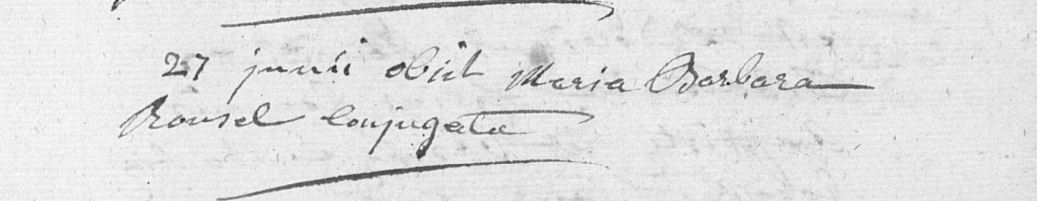 27 junii obiit Maria Barbara
Rousel Conjugata